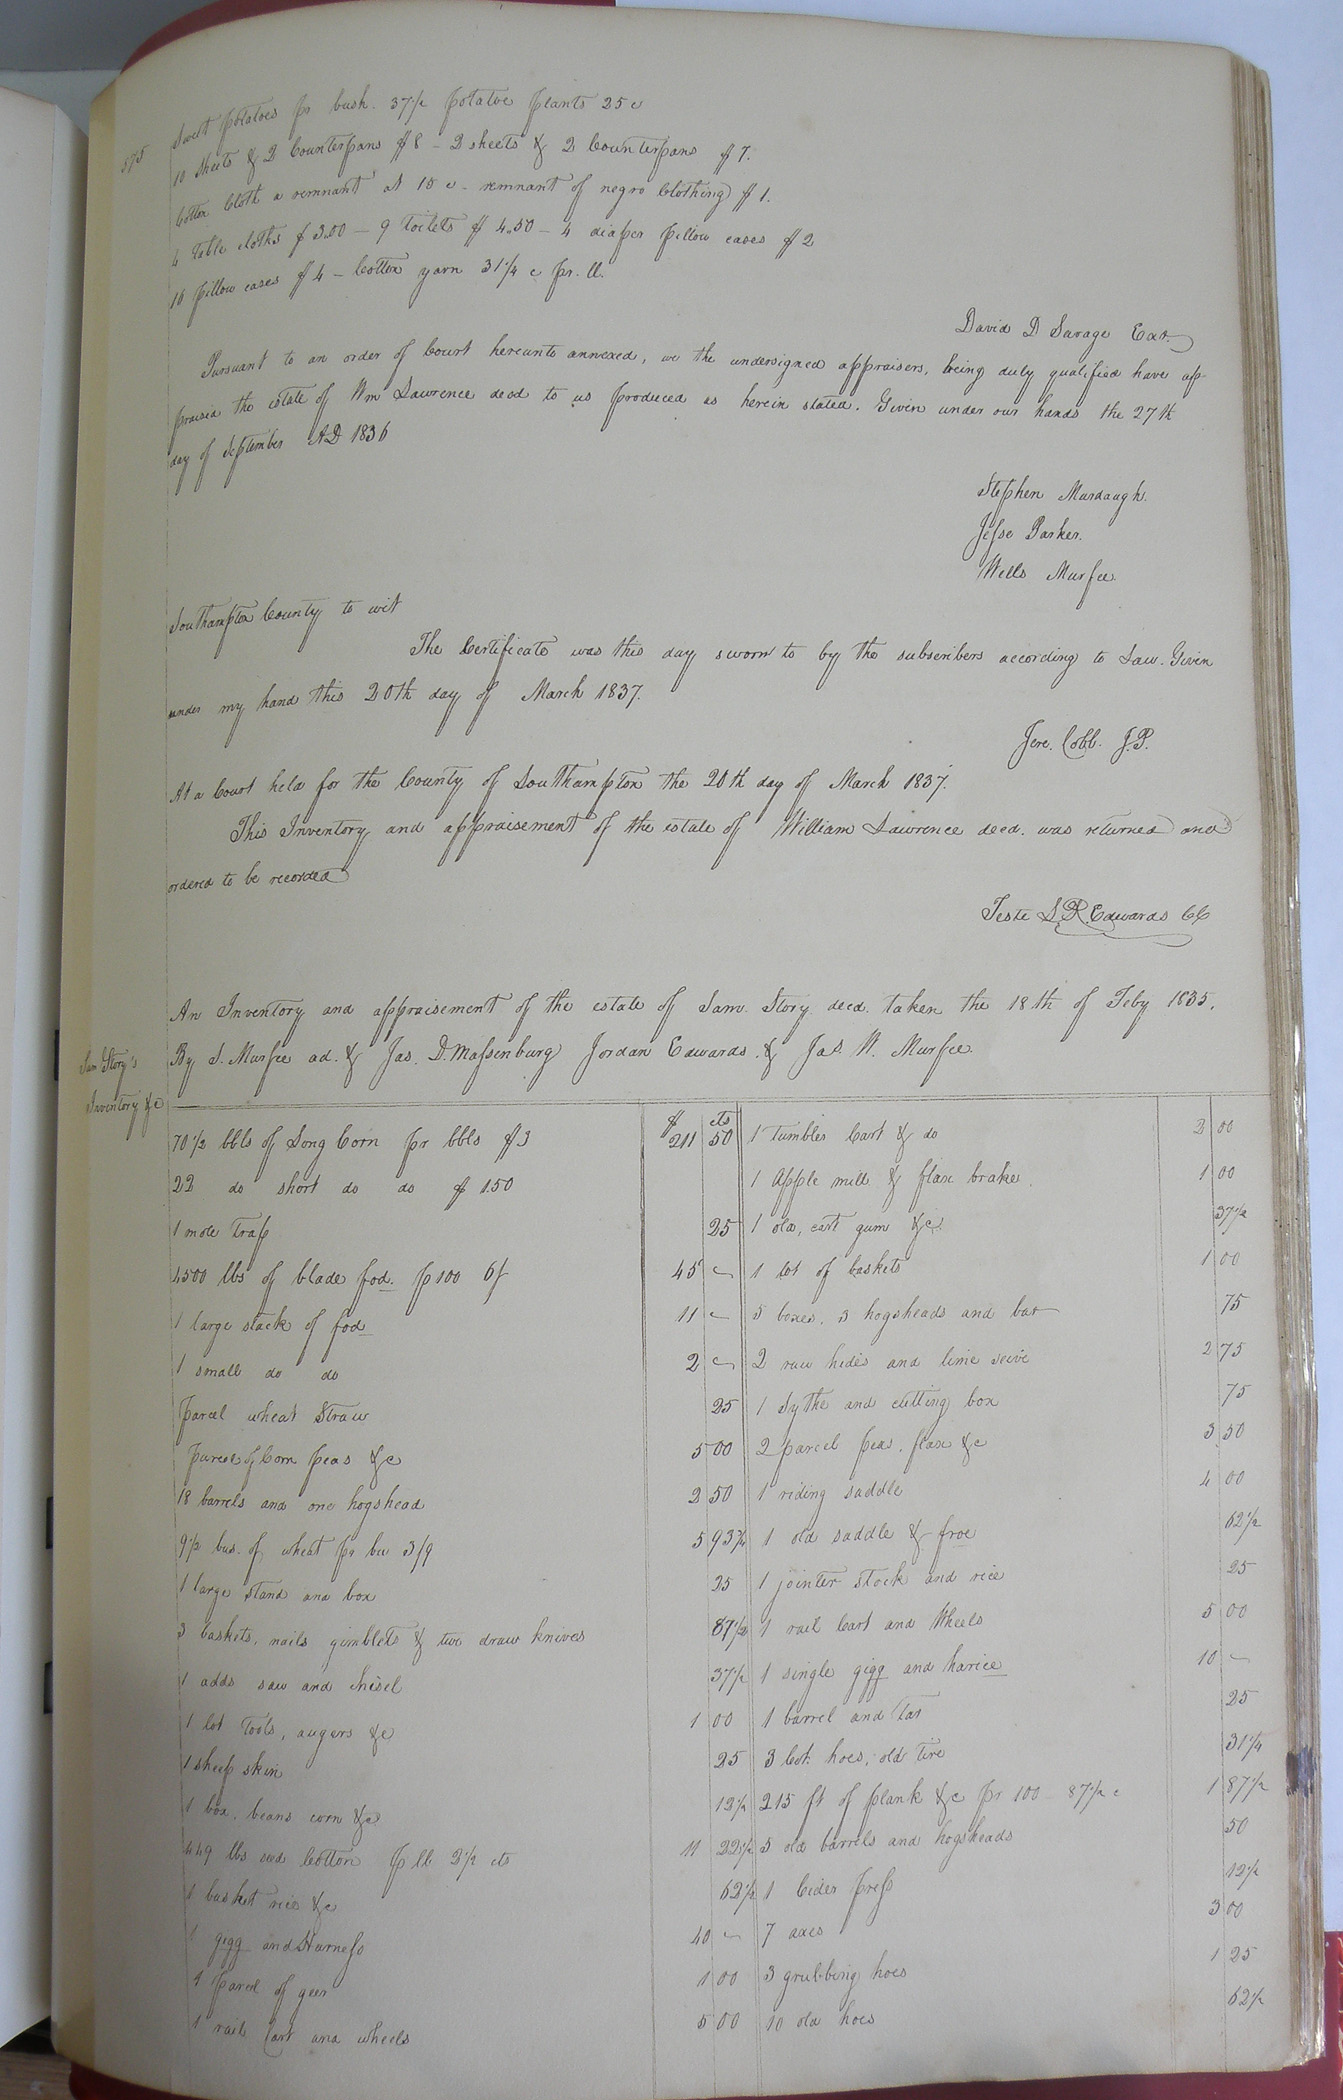 575
Sweet potatoes pr bush. 37 1/2 potatoe plants 25 c
10 sheets & 2 Counterpans $8 - 2 sheets & 2 Counterpans $7.
Cotton Cloth a remnant at 15 c - remnant of negro Clothing $1.
4 table cloths $3.00 - 9 toilets $4.50 - 4 diaper pillow cases $2
16 pillow cases $4 - Cotton yarn 31 1/4 c pr. ll.
David D Savage Exor.
Pursuant to an order of Court hereunto annexed, we the undersigned appraisers, being duly qualified have ap-
praised the estate of Wm Lawrence decd to us produced as herein stated. Given under our hands the 27th
day of September AD 1836
Stephen Murdaugh.
Jesse Parker.
Wells Murfee.
Southampton County to wit
The Certificate was this day sworn to by the subscribers according to Law. Given
under my hand this 20th day of March 1837.
Jere. Cobb. J.P.
At a Court held for the County of Southampton the 20th day of March 1837.
This Inventory and appraisement of the estate of William Lawrence decd. was returned and
ordered to be recorded
Teste L.R. Edwards CC
An Inventory and appraisement of the estate of Sam. Story decd. taken the 18th of Feby 1835.
Sam Story's
Inventory &c
By S. Murfee ad. & Jas. D. Massenburg Jordan Edwards & Jas. W. Murfee.
$ cts
70 1/2 bbls of Long Corn pr bbls $3 211 50
22 do short do do $1.50
1 mole trap 25
4500 lbs of blade fod. p 100 6/ 45 "
1 large stack of fod 11 "
1 small do do 2 "
parcel wheat straw 25
parcel of Corn peas &c 5 00
18 barrels and one hogshead 2 50
9 1/2 bus. of wheat pr bu 3/9 5 93 3/4
1 large stand and box 25
3 baskets, nails gimblets & two draw knives 87 1/2
1 adds saw and chisel 37 1/2
1 lot tools, augers &c 1 00
1 sheep skin 25
1 box. beans corn &c 12 1/2
449 lbs seed Cotton p ll 2 1/2 cts 11 22 1/2
1 basket rice &c 62 1/2
1 gigg and Harness 40 "
1 parcel of geer 1 00
1 rail Cart and wheels 5 00
1 Tumbler Cart & do 2 00
1 Apple mill & flax brake 1 00
1 old, cart gum &c 37 1/2
1 lot of baskets 1 00
5 boxes. 3 hogsheads and bar 75
2 raw hides and lime seive 2 75
1 Sythe and cutting box 75
2 parcel peas. flax &c 3 50
1 riding saddle 4 00
1 old saddle & froe 62 1/2
1 jointer stock and rice 25
1 rail Cart and Wheels 5 00
1 single gigg and harice 10 "
1 barrel and tar 25
3 Cot. hoes, old tire 31 1/4
215 ft of plank &c pr 100 87 1/2 c 1 87 1/2
5 old barrels and hogsheads 50
1 Cider press 12 1/2
7 axes 3 00
3 grubbing hoes 1 25
10 old hoes 62 1/2